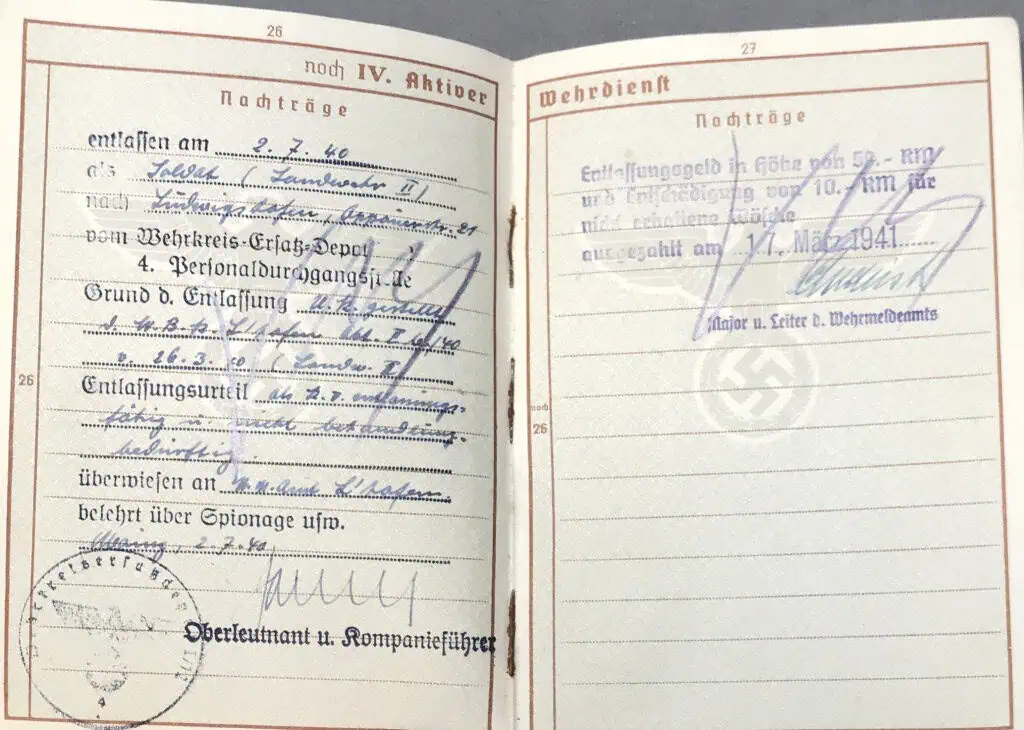 26
noch IV. Aktiver
Nachträge
entlassen am 2. 7. 40
als Soldat (Landwehr II)
nach Ludwigshafen, Oppauerstr. 21
vom Wehrkreis-Ersatz-Depot
4. Personaldurchgangsst
Grund d. Entlassung U.K. gestellt
d. W.B.K. L'hafen Abt. II b/40
v. 26.3. 40 (Landw. II)
Entlassungsurteil als k.v. entlassungs-
fähig u. nicht behandlungs-
bedürftig.
überwiesen an W.M. Amt L'hafen
belehrt über Spionage usw.
Mainz, 2.7.40
Oberleutnant u. Kompanieführer
4
26
27
Wehrdienst
Nachträge
Entlassungsgeld in Höhe von 50.- RM
und Entschädigung von 10.- RM für
nicht erhaltene Wäsche
ausgezahlt am 11. März 1941
Major u. Leiter d. Wehrmeldeamts
noch
26